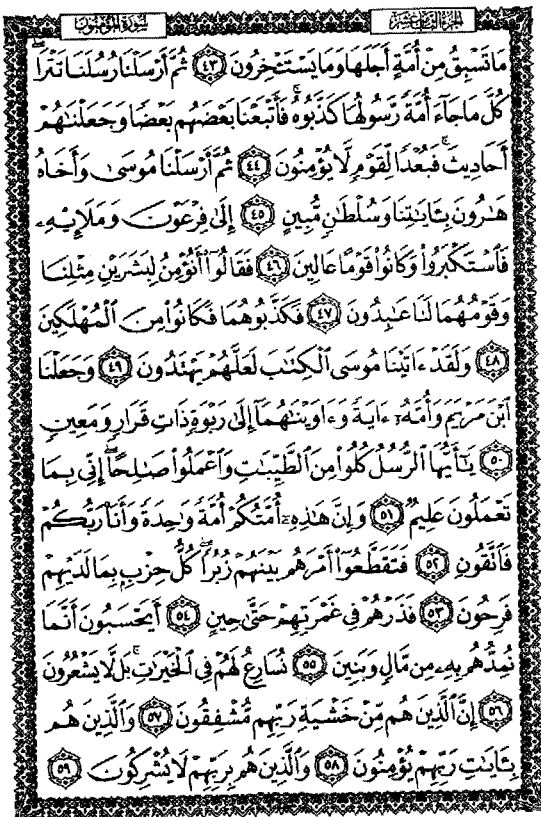 سُورَةُ المُؤمِنُون
الجزء الثامن عشر
مَا تَسْبِقُ مِنْ أُمَّةٍ أَجَلَهَا وَمَا يَسْتَـْٔخِرُونَ ٤٣ ثُمَّ أَرْسَلْنَا رُسُلَنَا تَتْرَا
كُلَّ مَا جَآءَ أُمَّةً رَّسُولُهَا كَذَّبُوهُ فَأَتْبَعْنَا بَعْضَهُم بَعْضًا وَجَعَلْنَٰهُمْ
أَحَادِيثَ فَبُعْدًا لِّقَوْمٍ لَّا يُؤْمِنُونَ ٤٤ ثُمَّ أَرْسَلْنَا مُوسَىٰ وَأَخَاهُ
هَٰرُونَ بِـَٔايَٰتِنَا وَسُلْطَٰنٍ مُّبِينٍ ٤٥ إِلَىٰ فِرْعَوْنَ وَمَلَإِيْهِۦ
فَٱسْتَكْبَرُوا۟ وَكَانُوا۟ قَوْمًا عَالِينَ ٤٦ فَقَالُوٓا۟ أَنُؤْمِنُ لِبَشَرَيْنِ مِثْلِنَا
وَقَوْمُهُمَا لَنَا عَٰبِدُونَ ٤٧ فَكَذَّبُوهُمَا فَكَانُوا۟ مِنَ ٱلْمُهْلَكِينَ
٤٨ وَلَقَدْ ءَاتَيْنَا مُوسَى ٱلْكِتَٰبَ لَعَلَّهُمْ يَهْتَدُونَ ٤٩ وَجَعَلْنَا
ٱبْنَ مَرْيَمَ وَأُمَّهُۥٓ ءَايَةً وَءَاوَيْنَٰهُمَآ إِلَىٰ رَبْوَةٍ ذَاتِ قَرَارٍ وَمَعِينٍ
٥٠ يَٰٓأَيُّهَا ٱلرُّسُلُ كُلُوا۟ مِنَ ٱلطَّيِّبَٰتِ وَٱعْمَلُوا۟ صَٰلِحًا إِنِّى بِمَا
تَعْمَلُونَ عَلِيمٌ ٥١ وَإِنَّ هَٰذِهِۦٓ أُمَّتُكُمْ أُمَّةً وَٰحِدَةً وَأَنَا۠ رَبُّكُمْ
فَٱتَّقُونِ ٥٢ فَتَقَطَّعُوٓا۟ أَمْرَهُم بَيْنَهُمْ زُبُرًا كُلُّ حِزْبٍۭ بِمَا لَدَيْهِمْ
فَرِحُونَ ٥٣ فَذَرْهُمْ فِى غَمْرَتِهِمْ حَتَّىٰ حِينٍ ٥٤ أَيَحْسَبُونَ أَنَّمَا
نُمِدُّهُم بِهِۦ مِن مَّالٍ وَبَنِينَ ٥٥ نُسَارِعُ لَهُمْ فِى ٱلْخَيْرَٰتِ بَل لَّا يَشْعُرُونَ
٥٦ إِنَّ ٱلَّذِينَ هُم مِّنْ خَشْيَةِ رَبِّهِم مُّشْفِقُونَ ٥٧ وَٱلَّذِينَ هُم
بِـَٔايَٰتِ رَبِّهِمْ يُؤْمِنُونَ ٥٨ وَٱلَّذِينَ هُم بِرَبِّهِمْ لَا يُشْرِكُونَ ٥٩